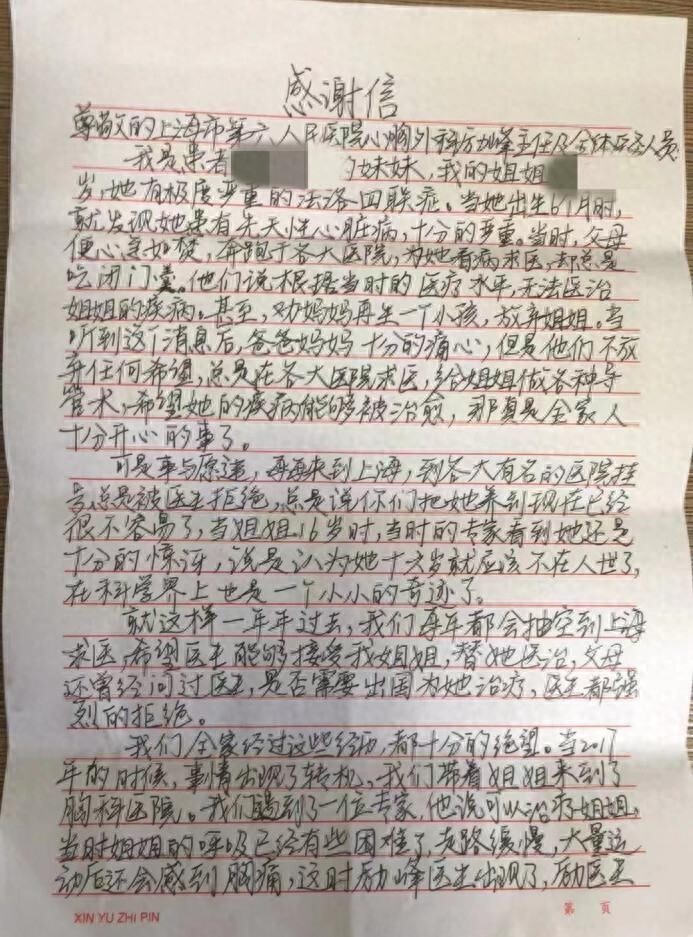 感谢信
尊敬的上海市第六人民医院心胸外科励峰主任及全体医务人员:
我是患者 的妹妹,我的姐姐
岁,她有极度严重的法洛四联症。当她出生6个月时,
就发现她患有先天性心脏病,十分的严重。当时,父母
便心急如焚,奔跑于各大医院,为她看病求医,却总是
吃闭门羹。他们说根据当时的医疗水平,无法医治
姐姐的疾病。甚至,劝妈妈再生一个小孩,放弃姐姐。当
听到这个消息后,爸爸妈妈十分的痛心,但是他们不放
弃任何希望,总是在各大医院求医,给姐姐做各种导
管术,希望她的疾病能够被治愈,那真是全家人
十分开心的事了。
可是事与愿违,再再来到上海,到各大有名的医院挂
号,总是被医生拒绝,总是说你们把她养到现在已经
很不容易了,当姐姐16岁时,当时的专家看到她还是
十分的惊讶,说是认为她十六岁就应该不在人世了,
在科学界上也是一个小小的奇迹了。
就这样一年年过去,我们每年都会抽空到上海
求医,希望医生能够接受我姐姐,替她医治,父母
还曾经问过医生,是否需要出国为她治疗,医生都强
烈的拒绝。
我们全家经过这些经历,都十分的绝望。当2017
年的时候,事情出现了转机,我们带着姐姐来到了
胸科医院。我们遇到了一位专家,他说可以治疗姐姐,
当时姐姐的呼吸已经有些困难了,走路缓慢,大量运
动后还会感到胸痛,这时励峰医生出现了,励医生
XIN YU ZHI PIN
第 页